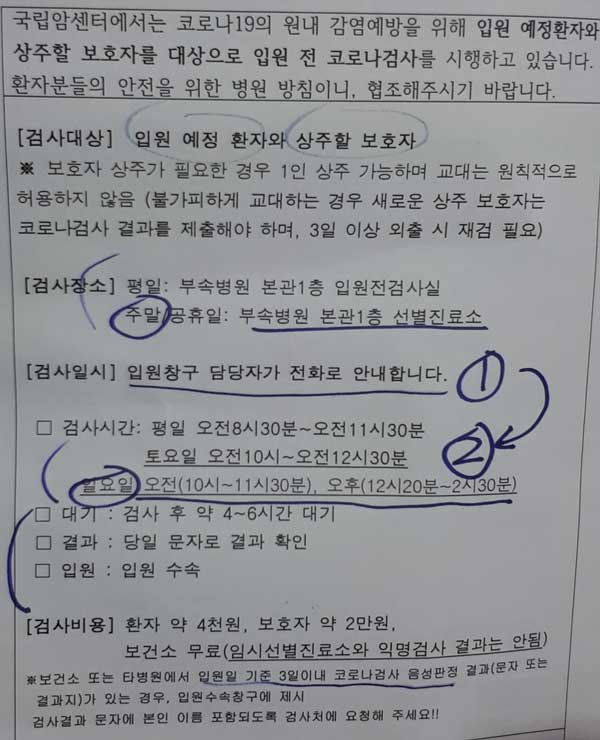 국립암센터에서는 코로나19의 원내 감염예방을 위해 입원 예정환자와
상주할 보호자를 대상으로 입원 전 코로나검사를 시행하고 있습니다.
환자분들의 안전을 위한 병원 방침이니, 협조해주시기 바랍니다.
[검사대상] 입원 예정 환자와 상주할 보호자
※ 보호자 상주가 필요한 경우 1인 상주 가능하며 교대는 원칙적으로
허용하지 않음 (불가피하게 교대하는 경우 새로운 상주 보호자는
코로나검사 결과를 제출해야 하며, 3일 이상 외출 시 재검 필요)
[검사장소] 평일: 부속병원 본관1층 입원전검사실
주말/공휴일: 부속병원 본관1층 선별진료소
[검사일시] 입원창구 담당자가 전화로 안내합니다. ①
□ 검사시간: 평일 오전8시30분~오전11시30분
토요일 오전10시~오전12시30분 ②
일요일 오전(10시~11시30분), 오후(12시20분~2시30분)
□ 대기 : 검사 후 약 4~6시간 대기
□ 결과 : 당일 문자로 결과 확인
□ 입원 : 입원 수속
[검사비용] 환자 약 4천원, 보호자 약 2만원,
보건소 무료(임시선별진료소와 익명검사 결과는 안됨)
※보건소 또는 타병원에서 입원일 기준 3일이내 코로나검사 음성판정 결과(문자 또는
결과지)가 있는 경우, 입원수속창구에 제시
검사결과 문자에 본인 이름 포함되도록 검사처에 요청해 주세요!!